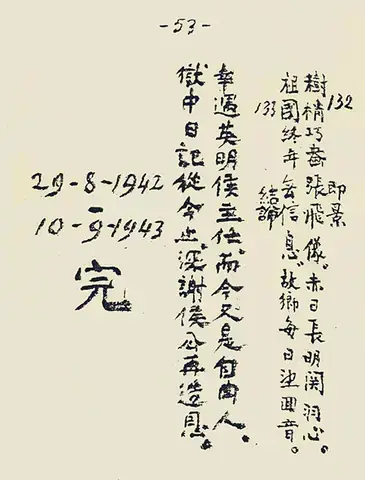 -53-
132
即景
樹梢巧畫張飛像。赤日長明関羽心。
祖國終年無信息。故鄉每日望回音。
133
結論
幸遇英明侯主任。而今又是自由人。
獄中日記從今止。深謝侯公再造恩。
29-8-1942
-
10-9-1943
完